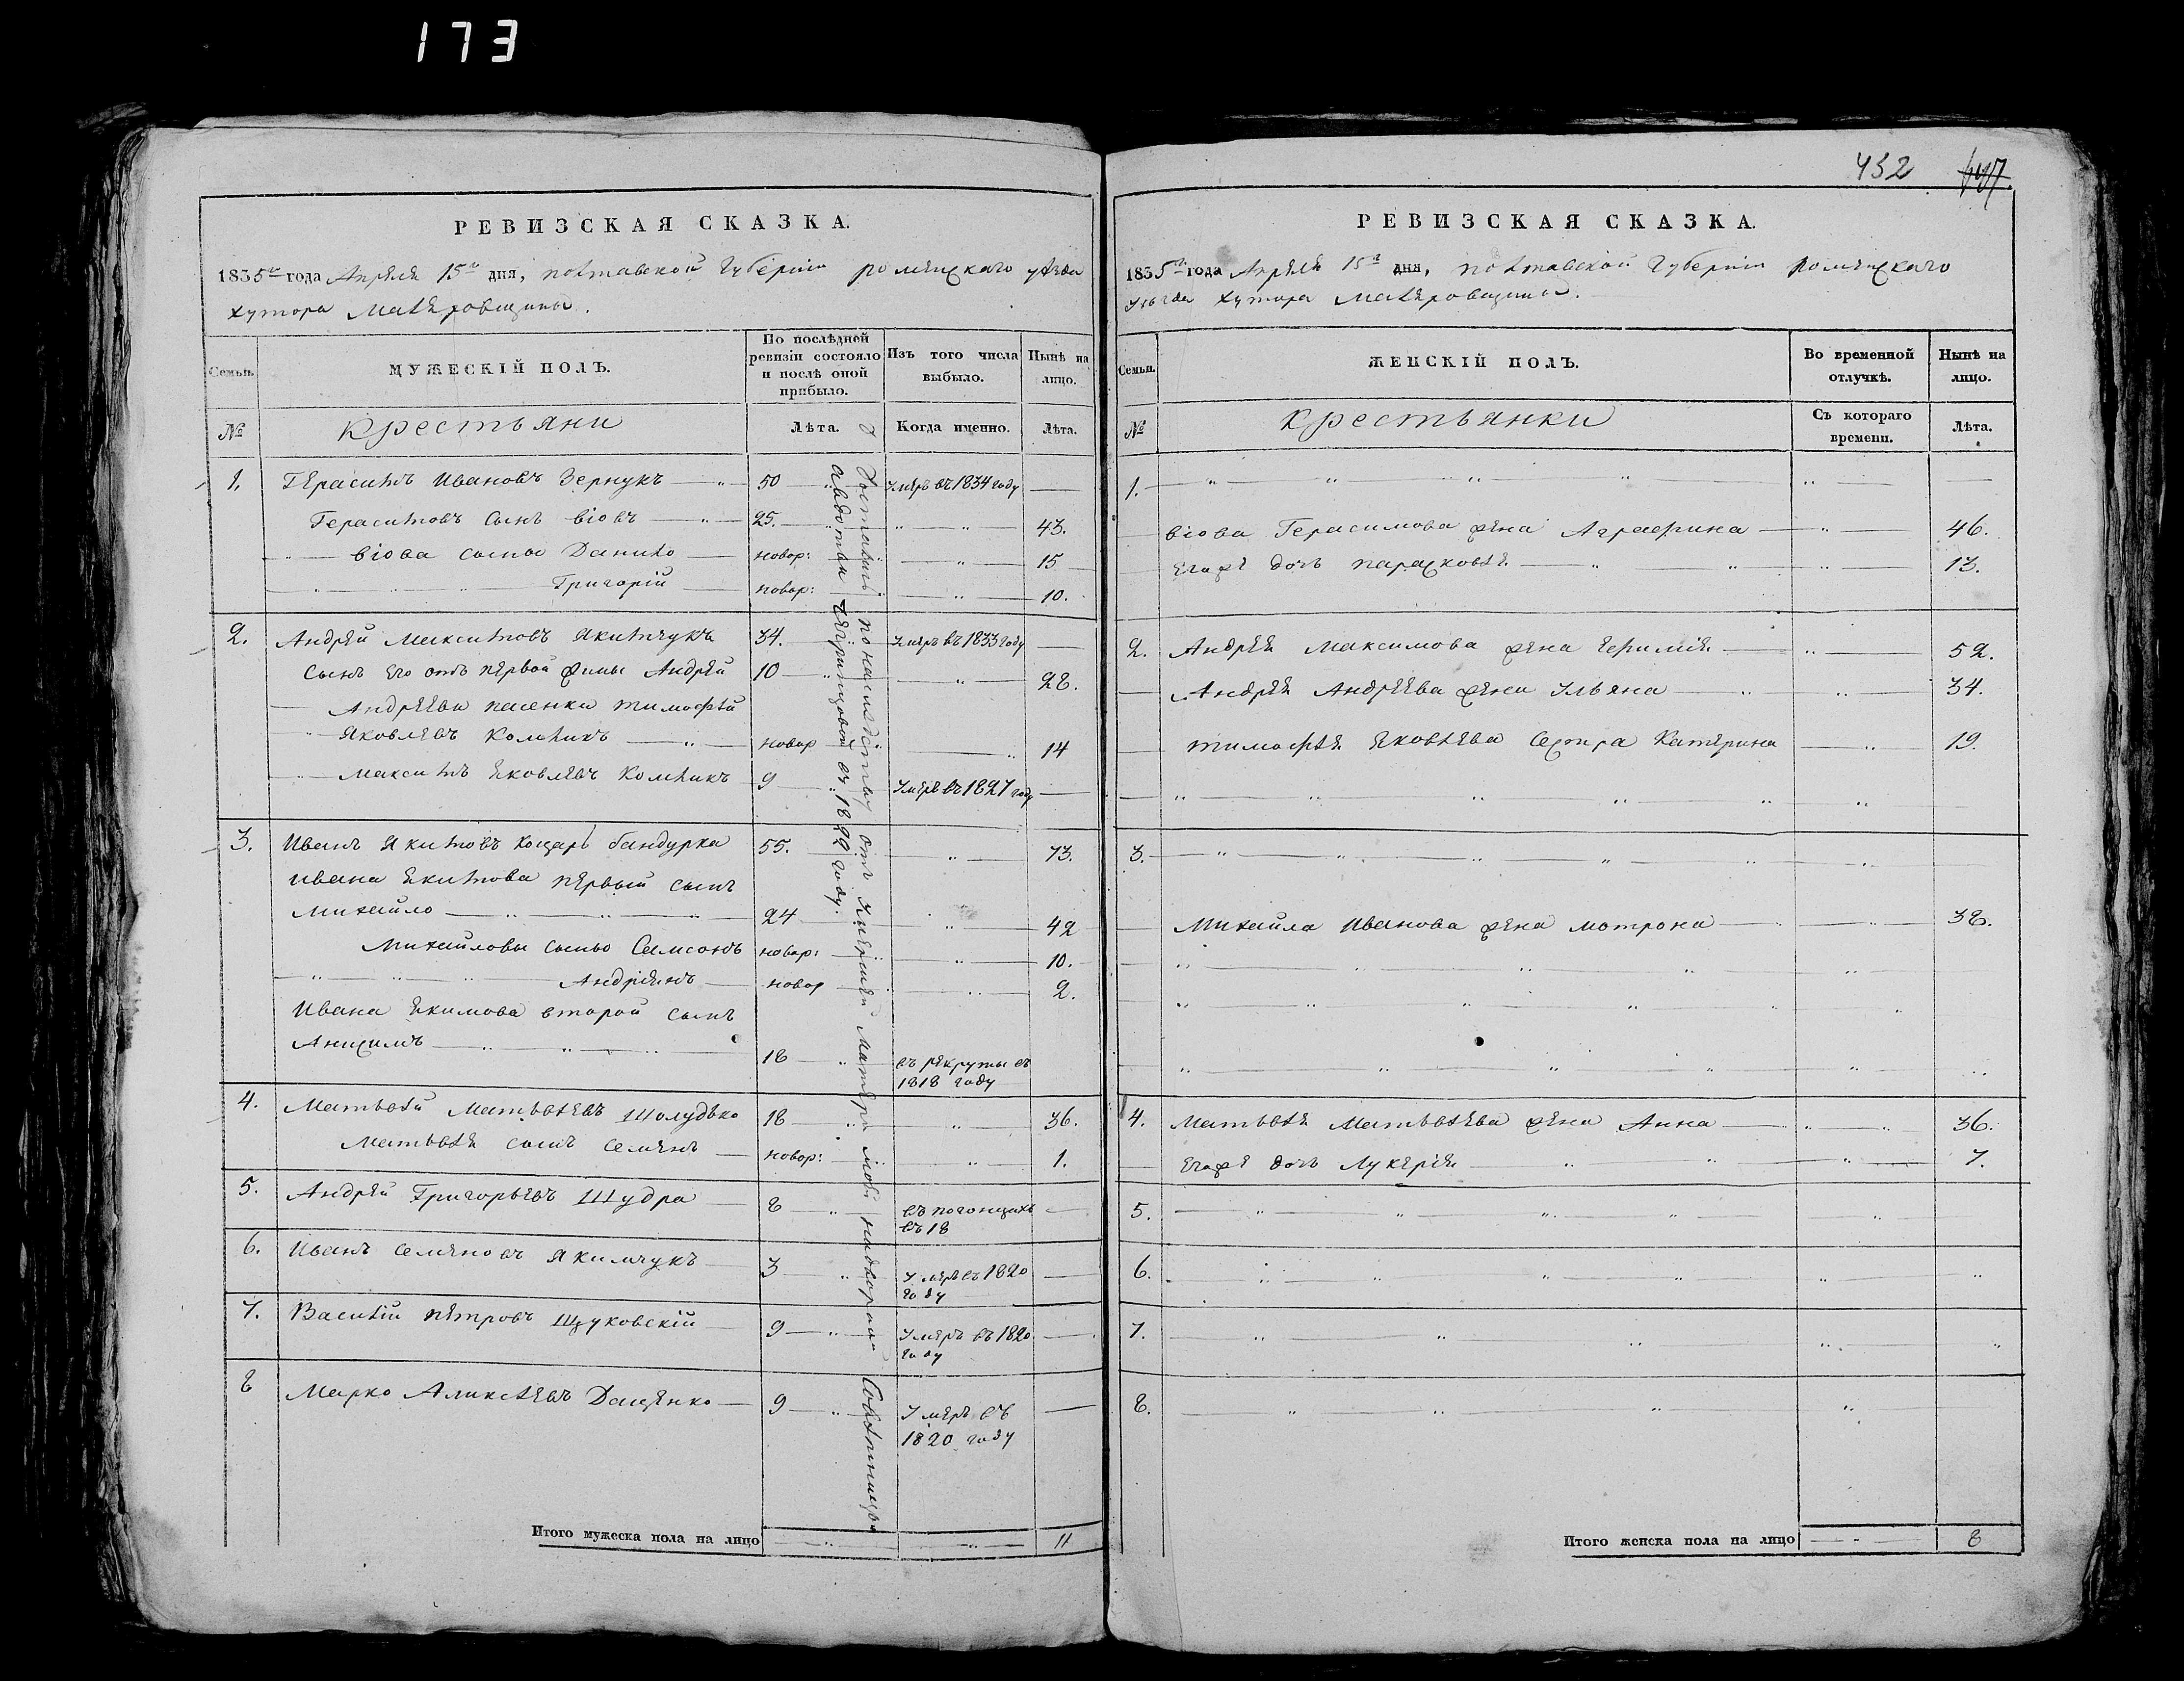 173
РЕВИЗСКАЯ СКАЗКА.
1835го года Апреля 15го дня, полтавской Губерніи роменскаго уезда
хутора
Семьи.
МУЖЕСКІЙ ПОЛЪ.
По послѣдней ревизіи состояло и послѣ оной прибыло.
Изъ того числа выбыло.
Нынѣ на лицо.
№
Крестьяни
Лѣта.
Когда именно.
Лѣта.
1. Герасимъ Ивановъ Зернукъ — 50 — Умеръ въ 1834 году —
Герасимовъ сынъ Віовъ — 25. — 43.
Віова сыны Данило — новор: — 15
Григорій — новор: — 10.
2. Андрей Максимовъ Якимчукъ 34. — Умеръ въ 1833 году —
Сынъ его отъ первой жены Андрей 10 — 28.
Андреева пасенки тимофей
Яковлевъ — новор — 14
Максимъ Яковлевъ 9 — Умеръ въ 1827 году —
3. Иванъ Якимовъ бандурка 55. — 73.
Ивана Екимова первый сынъ
Михайло — 24 — 42
Михайловы сыны Самсонъ новор: — 10.
Андріянъ — новор — 2.
Ивана Екимова второй сынъ
Анисимъ — 18 — въ рекруты въ
1818 году
4. Матвей Матвеевъ Шолудько 18 — 36.
Матвея сынъ Семенъ — новор: — 1.
5. Андрей Григорьевъ Шудра — 8 —
въ 18
6. Иванъ Семеновъ Якимчукъ — 3 — Умеръ въ 1820
году
7. Василій Петровъ Щуковскій — 9 — Умеръ въ 1820
году
8 Марко Аликсеевъ Даценко — 9 — Умеръ въ
1820 году
Итого мужеска пола на лицо — 11
Достались по наследству отъ умершей матери моей надворной Советницы
Авдотьи въ 1822 году.
432
РЕВИЗСКАЯ СКАЗКА.
1835го года Апреля 15го дня, полтавской Губерніи Роменскаго
уезда хутора
Семьи.
ЖЕНСКІЙ ПОЛЪ.
Во временной отлучкѣ.
Нынѣ на лицо.
№
Крестьянки
Съ котораго времени.
Лѣта.
1. —
Віова Герасимова жена Аграфина — 46.
Егожъ дочь парасковея — 13.
2. Андрея Максимова жена — 52.
Андрея Андреева жена Ульяна — 34.
тимофея Яковлева сестра Катерина — 19.
3. —
Михайла Иванова жена мотрона — 38.
4. Матвея Матвеева жена Анна — 36.
Егожъ дочь Лукерія — 7.
5. —
6. —
7. —
8. —
Итого женска пола на лицо — 8